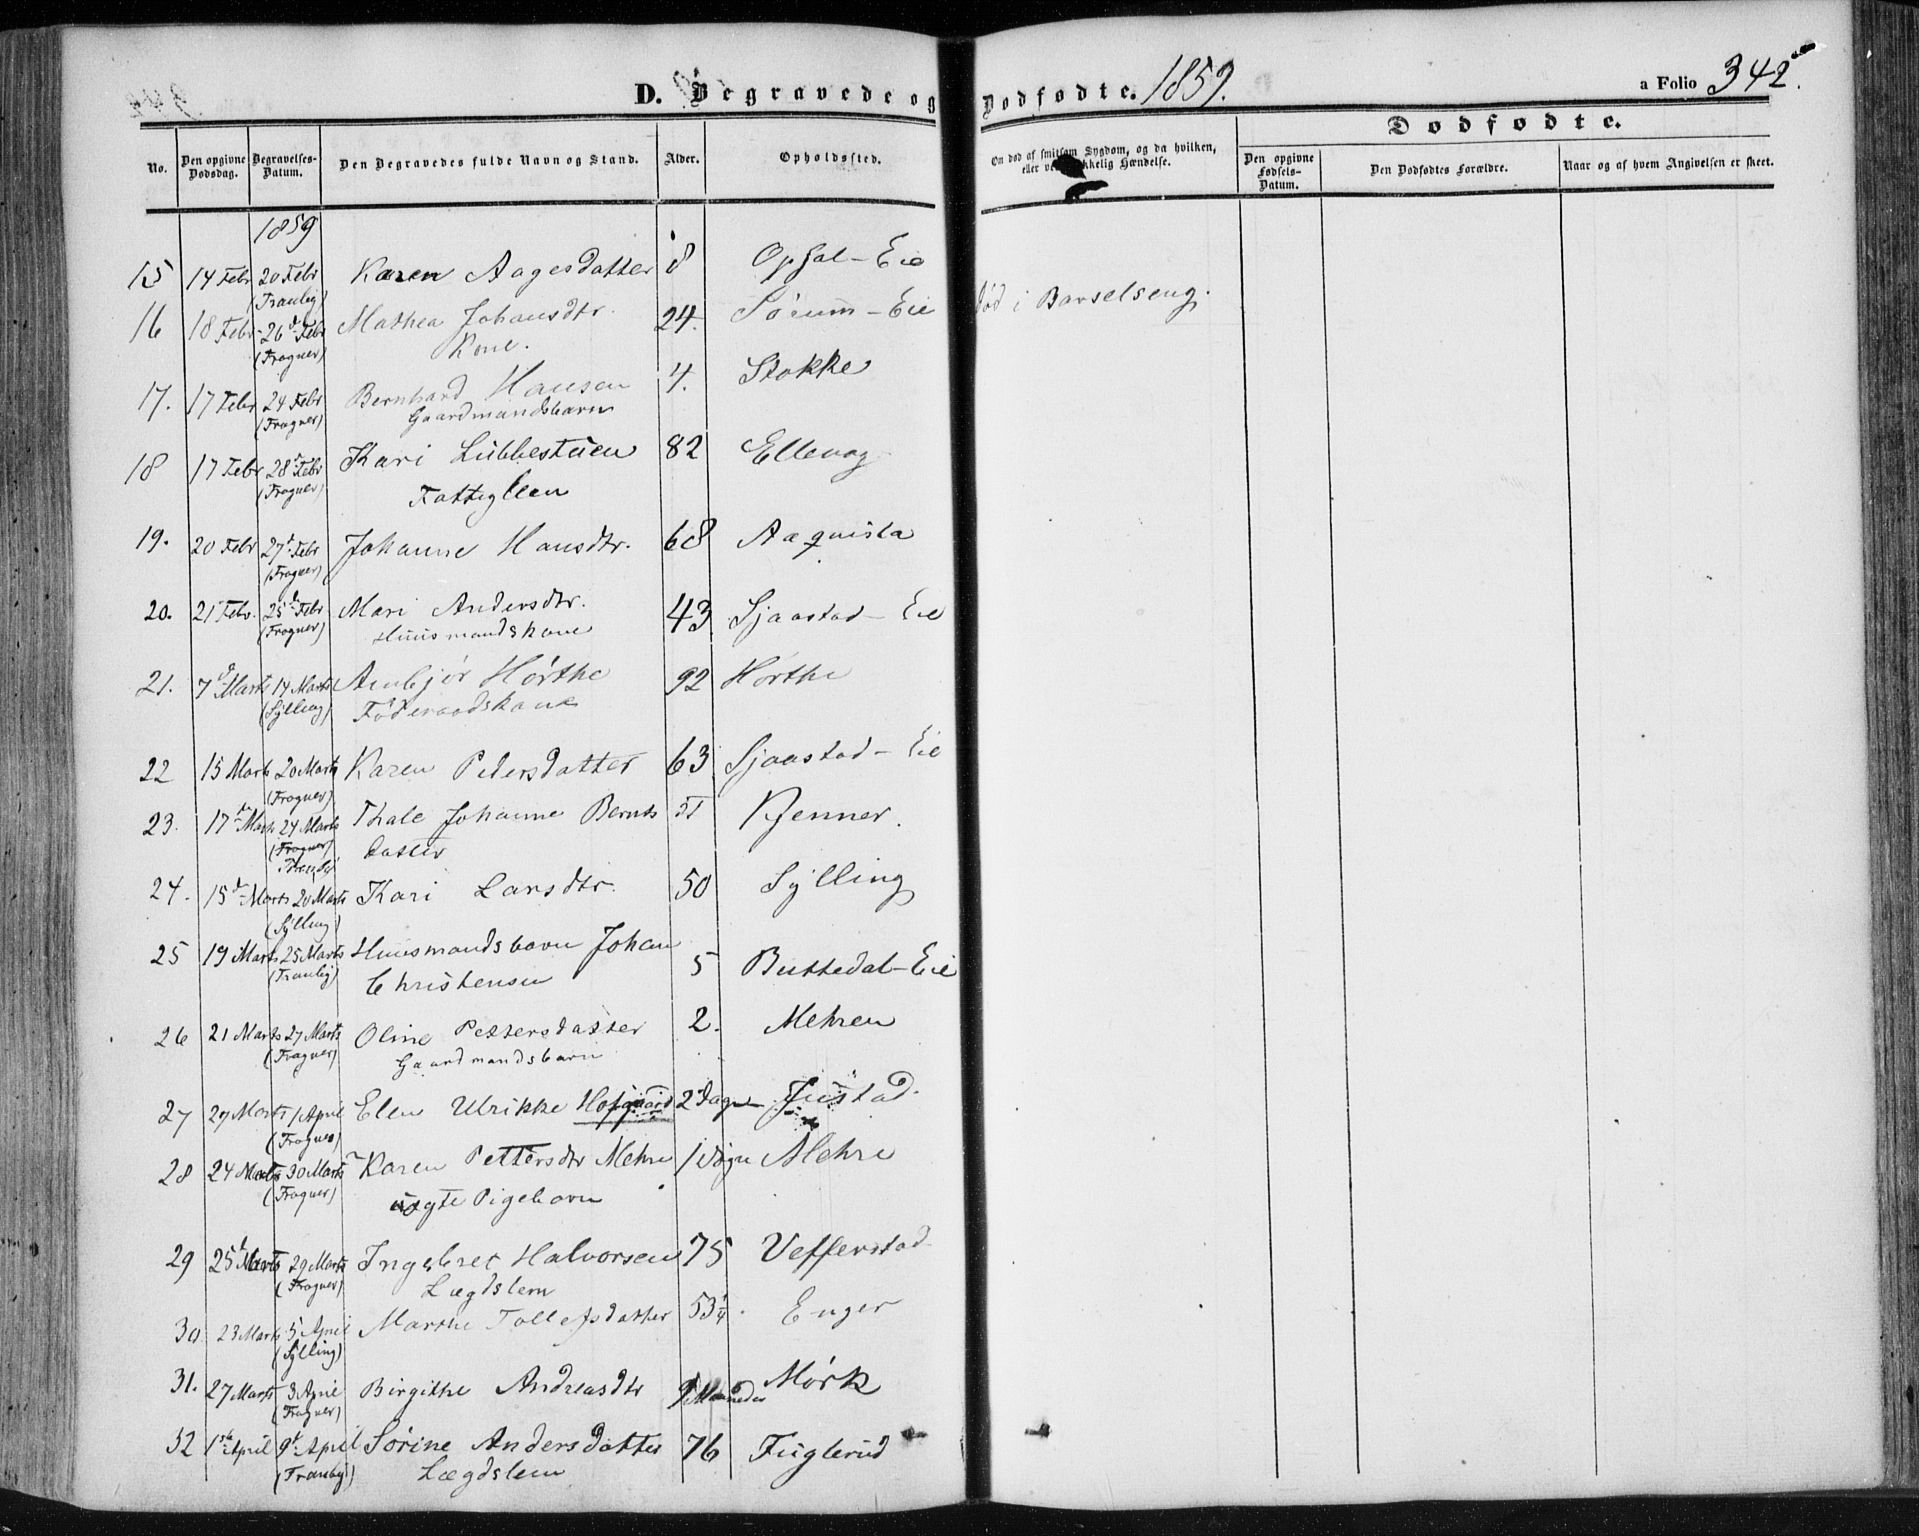 D. Begravede og Dödfödte. 1859. a Folio 342.
Dödfödte.
No. Den opgivne Dödsdag. Begravelses-Datum. Den Begravedes fulde Navn og Stand. Alder. Opholdssted. Om död af smitsom Sygdom, og da hvilken, eller ved ulykkelig Hændelse. Den opgivne Födsels-Datum. Den Dödfödtes Forældre. Naar og af hvem Angivelsen er skeet.
1859
15 14 Febr 20 Febr Karen Aagesdatter 8 Opsal - Eie
(Tranby)
16 18 Febr 26d Febr Mathea Johansdtr. 24. Sörum - Eie död i Barselseng.
(Frogner) Kone.
17. 17 Febr 24 Febr Bernhard Hansen 4. Stokke
(Frogner) Gaardmandsbarn
18 17 Febr 28d Febr Kari Lübbestuen 82 Ellevog
(Frogner) Fattiglem
19. 20 Febr 27d Febr Johanne Hansdtr. 68 Aaqvisla
(Frogner)
20. 21 Febr. 25d Febr Mari Andersdtr. 43 Sjaastad - Eie
(Frogner) Huusmandskone
21. 7d Marts 14 Marts Annbjör Hörthe 92 Hörthe
(Sylling) Föderaadskone
22 15 Marts 20 Marts Karen Pedersdatter 63 Sjaastad - Eie
(Frogner)
23. 17de Marts 24 Marts Thale Johanne Bernts Kjenner.
(Frogner) datter
Tranby
24. 15d Marts 20 Marts Kari Larsdtr. 50 Sylling
(Sylling)
25 19 Marts 25 Marts Huusmandsbarn Johan 5 Buttedal - Eie
(Tranby) Christensen
26 21 Marts 27 Marts Oline Pettersdatter 2. Mehren
(Frogner) Gaardmandsbarn
27 29 Marts 1 April Elen Ulrikke Hofgaard 2 Dage Justad
(Frogner)
28 24 Marts 30 Marts Karen Pettersdtr Mehre 1 Dögn Mehre
(Frogner) uægte Pigebarn
29 25d Marts 29 Marts Ingebret Halvorsen 75 Vefferstad
(Frogner) Lægdslem
30 23 Marts 5 April Marthe Tollefsdatter 53 1/4 Enger
(Sylling)
31. 27 Marts 3 April Birgithe Andreasdtr 9 Maaneder Mörk
(Frogner)
32 1ste April 9d April Sörine Andersdatter 76 Fuglerud
(Tranby) Lægdslem